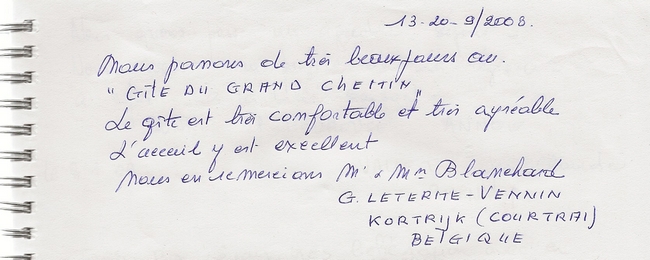 13-20-9/2008.
Nous passons de très beaux jours au.
"GÎTE DU GRAND CHEMIN"
Le gîte est très comfortable et très agréable
L'acceuil y est excellent
Nous en remercions Mr & Mm Blanchard
G. LETERME-VENNIN
KORTRIJK (COURTRAI)
BELGIQUE